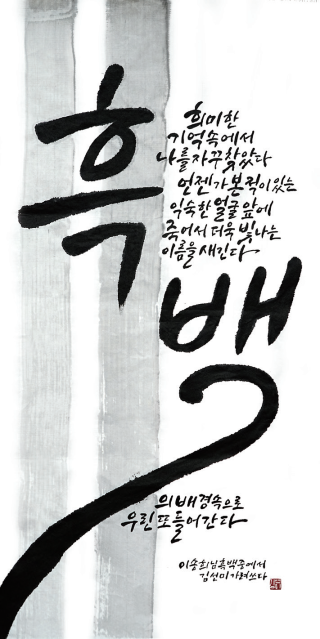 흑백
희미한
기억속에서
나를자꾸찾았다
언젠가본적이있는
익숙한얼굴앞에
죽어서더욱빛나는
이름을새긴다
의배경속으로
우린또들어간다
이송희님흑백중에서
김선미가려쓰다